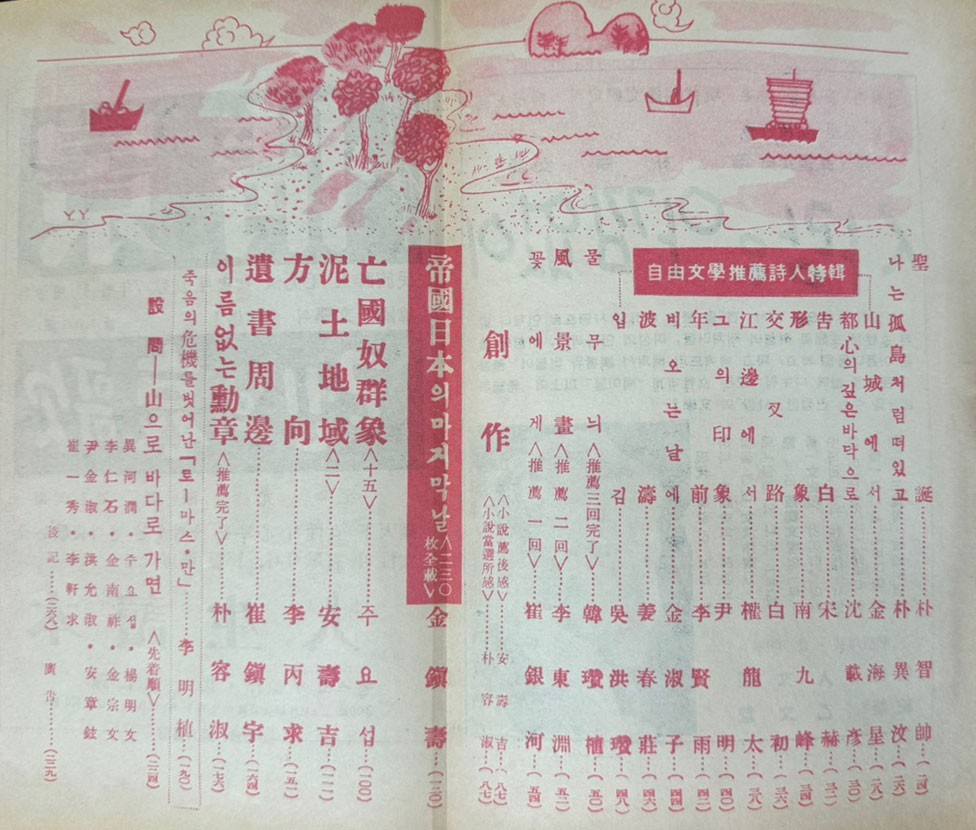 聖誕……朴智帥
나는孤島처럼떠있고……朴異汶
自由文學推薦詩人特輯
山城에서……金海星
都心의깊은바닥으로……沈載彦
告白……宋赫
形象……南九峰
交叉路……白初
江邊에서……權龍太
그의印象……尹明
年前……李賢雨
비오는날에……金淑子(四四)
波濤……姜春莊(四六)
입김……吳洪瓚(四八)
물무늬<推薦三回完了>……韓瓚植(五〇)
風景畫<推薦二回>……李東淵(五二)
꽃에게<推薦一回>……崔銀河(五四)
創作
<小說薦後感>……安壽吉(八七)
<小說當選所感>……朴容淑(八七)
帝國日本의마지막날<二三〇枚全載>金鎭壽
亡國奴群象<十五>……주요섭(一〇〇)
泥土地域<二>……安壽吉
方向……李丙求(一五一)
遺書周邊……崔鎭宇(一六四)
이름없는勳章<推薦完了>……朴容淑(一七六)
죽음의危機를벗어난「토ー마스・만」……李明植(一九〇)
設問——山으로바다로가면<先着順>
異河潤・주요섭・楊明文
李仁石・金南祚・金宗文
尹金淑・洪允淑・安章鉉
崔一秀・李軒求
後記……(二六八)
廣告……(二三九)